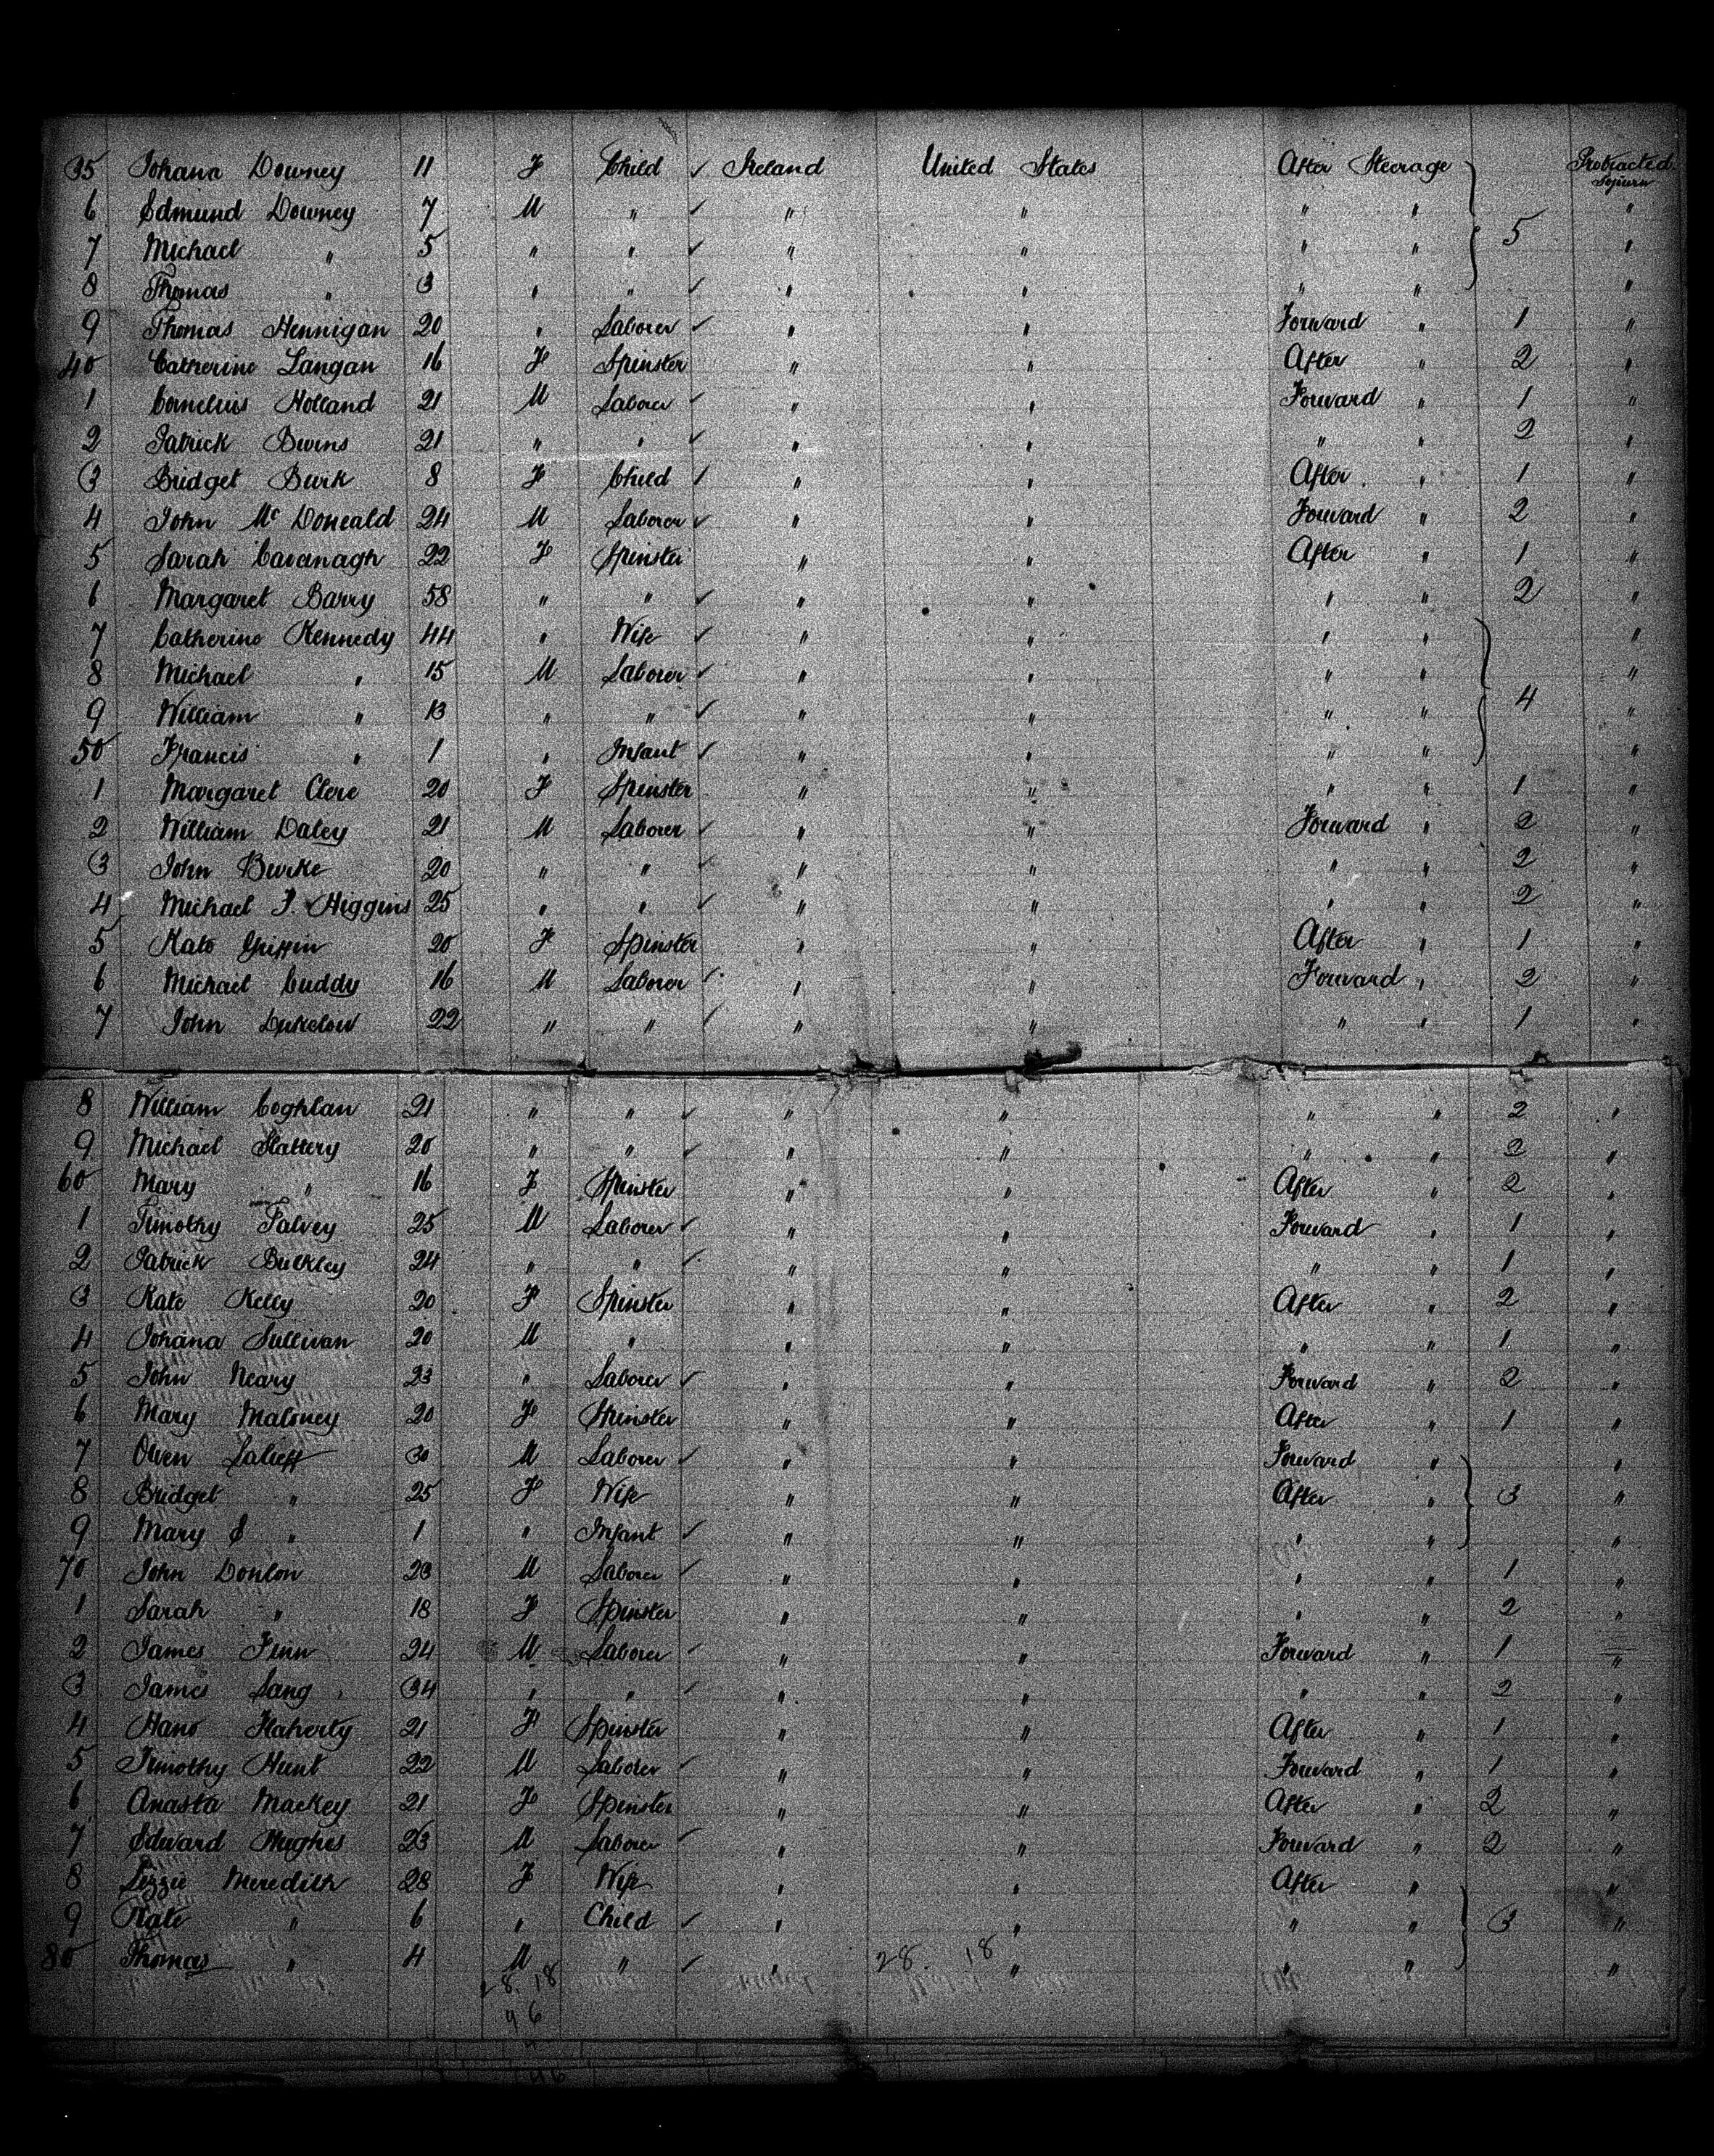 35 Johana Downey 11 F Child ✓ Ireland United States After Steerage Protracted Sojourn
6 Edmund Downey 7 M " ✓ " " " " 5 "
7 Michael " 5 " " ✓ " " " " "
8 Thomas " 3 " " ✓ " " " " "
9 Thomas Hennigan 20 " Laborer ✓ " " Forward " 1 "
40 Catherine Langan 16 F Spinster " " After " 2 "
1 Cornelius Holland 21 M Laborer ✓ " " Forward " 1 "
2 Patrick Burns 21 " " ✓ " " " " 2 "
3 Bridget Burk 8 F Child ✓ " " After " 1 "
4 John McDoneald 24 M Laborer ✓ " " Forward " 2 "
5 Sarah Cavanagh 22 F Spinster " " After " 1 "
6 Margaret Barry 58 " " ✓ " " " " 2 "
7 Catherine Kennedy 44 " Wife ✓ " " " " "
8 Michael " 15 M Laborer ✓ " " " " "
9 William " 13 " " ✓ " " " " 4 "
50 Francis " 1 " Infant ✓ " " " " "
1 Margaret Clere 20 F Spinster " " " " 1 "
2 William Daley 21 M Laborer ✓ " " Forward " 2 "
3 John Burke 20 " " ✓ " " " " 2 "
4 Michael P. Higgins 25 " " ✓ " " " " 2 "
5 Kate Griffin 20 F Spinster " " After " 1 "
6 Michael Cuddy 16 M Laborer ✓ " " Forward " 2 "
7 John Dukelow 22 " " ✓ " " " " 1 "
8 William Coghlan 21 " " ✓ " " " " 2 "
9 Michael Slattery 20 " " ✓ " " " " 2 "
60 Mary " 16 F Spinster " " After " 2 "
1 Timothy Falvey 25 M Laborer ✓ " " Forward " 1 "
2 Patrick Bulkley 24 " " ✓ " " " " 1 "
3 Kate Kelly 20 F Spinster " " After " 2 "
4 Johana Sullivan 20 M " " " " " 1 "
5 John Neary 23 " Laborer ✓ " " Forward " 2 "
6 Mary Maloney 20 F Spinster " " After " 1 "
7 Owen 30 M Laborer ✓ " " Forward " "
8 Bridget " 25 F Wife " " After " 3 "
9 Mary " 1 " Infant ✓ " " " " "
70 John Donlon 23 M Laborer ✓ " " " " 1 "
1 Sarah " 18 F Spinster " " " " 2 "
2 James Finn 24 M Laborer ✓ " " Forward " 1 "
3 James Lang 34 " " ✓ " " " " 2 "
4 Hano Flaherty 21 F Spinster " " After " 1 "
5 Timothy Hunt 22 M Laborer ✓ " " Forward " 1 "
6 Anasta Mackey 21 F Spinster " " After " 2 "
7 Edward Hughes 23 M Laborer ✓ " " Forward " 2 "
8 Lizzie Meredith 28 F Wife " " After " "
9 Kate " 6 " Child ✓ " " " " 3 "
80 Thomas " 4 M " ✓ " 28. 18 " " " "
28. 18
96